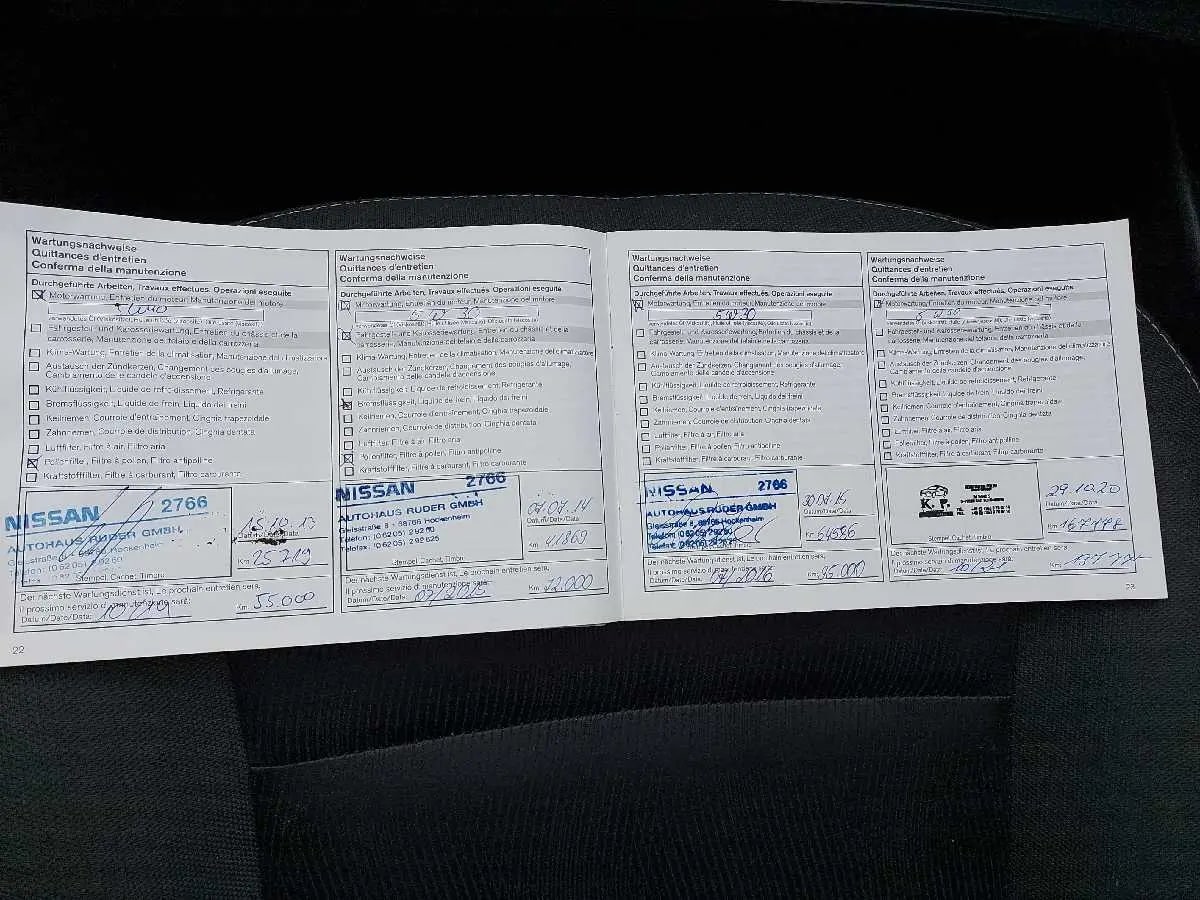 Wartungsnachweise
Quittances d'entretien
Conferma della manutenzione
Durchgeführte Arbeiten, Travaux effectués, Operazioni eseguite
Motorwartung, Entretien du moteur, Manutenzione del motore
Fahrgestell- und Karosseriewartung, Entretien du châssis et de la
carrosserie, Manutenzione del telaio e della carrozzeria
Klima-Wartung, Entretien de la climatisation, Manutenzione del climatizzatore
Austausch der Zündkerzen, Changement des bougies d'allumage,
Cambiamento delle candele d'accensione
Kühlflüssigkeit, Liquide de refroidissement, Refrigerante
Bremsflüssigkeit, Liquide de frein, Liquido dei freni
Keilriemen, Courroie d'entraînement, Cinghia trapezoidale
Zahnriemen, Courroie de distribution, Cinghia dentata
Luftfilter, Filtre à air, Filtro aria
Pollenfilter, Filtre à pollen, Filtro antipolline
Kraftstofffilter, Filtre à carburant, Filtro carburante
NISSAN 2766
AUTOHAUS RUDER GMBH
Gleisstraße 8 Hockenheim
Stempel, Cachet, Timbro
15.10.13
Km 25719
Der nächste Wartungsdienst ist, Le prochain entretien sera,
Il prossimo servizio di manutenzione sarà:
Datum/Date/Data:
Km 55.000
22
Wartungsnachweise
Quittances d'entretien
Conferma della manutenzione
Durchgeführte Arbeiten, Travaux effectués, Operazioni eseguite
Motorwartung, Entretien du moteur, Manutenzione del motore
5W30
Fahrgestell- und Karosseriewartung, Entretien du châssis et de la
carrosserie, Manutenzione del telaio e della carrozzeria
Klima-Wartung, Entretien de la climatisation, Manutenzione del climatizzatore
Austausch der Zündkerzen, Changement des bougies d'allumage,
Cambiamento delle candele d'accensione
Kühlflüssigkeit, Liquide de refroidissement, Refrigerante
Bremsflüssigkeit, Liquide de frein, Liquido dei freni
Keilriemen, Courroie d'entraînement, Cinghia trapezoidale
Zahnriemen, Courroie de distribution, Cinghia dentata
Luftfilter, Filtre à air, Filtro aria
Pollenfilter, Filtre à pollen, Filtro antipolline
Kraftstofffilter, Filtre à carburant, Filtro carburante
NISSAN 2766
AUTOHAUS RUDER GMBH
Gleisstraße 8 - 68766 Hockenheim
Telefon: (06205) 29260
Telefax: (06205) 292625
Stempel, Cachet, Timbro
07.07.14
Datum/Date/Data
Km 41869
Der nächste Wartungsdienst ist, Le prochain entretien sera,
Il prossimo servizio di manutenzione sarà:
Datum/Date/Data: 07/2015
Km 72.000
Wartungsnachweise
Quittances d'entretien
Conferma della manutenzione
Durchgeführte Arbeiten, Travaux effectués, Operazioni eseguite
Motorwartung, Entretien du moteur, Manutenzione del motore
5W30
Fahrgestell- und Karosseriewartung, Entretien du châssis et de la
carrosserie, Manutenzione del telaio e della carrozzeria
Klima-Wartung, Entretien de la climatisation, Manutenzione del climatizzatore
Austausch der Zündkerzen, Changement des bougies d'allumage,
Cambiamento delle candele d'accensione
Kühlflüssigkeit, Liquide de refroidissement, Refrigerante
Bremsflüssigkeit, Liquide de frein, Liquido dei freni
Keilriemen, Courroie d'entraînement, Cinghia trapezoidale
Zahnriemen, Courroie de distribution, Cinghia dentata
Luftfilter, Filtre à air, Filtro aria
Pollenfilter, Filtre à pollen, Filtro antipolline
Kraftstofffilter, Filtre à carburant, Filtro carburante
NISSAN 2766
AUTOHAUS RUDER GMBH
Gleisstraße 8, 68766 Hockenheim
Telefon: (06205) 29260
30.07.15
Datum/Date/Data
Km 64586
Der nächste Wartungsdienst ist, Le prochain entretien sera,
Datum/Date/Data: 07/2016
Km 95.000
Wartungsnachweise
Quittances d'entretien
Conferma della manutenzione
Durchgeführte Arbeiten, Travaux effectués, Operazioni eseguite
Motorwartung, Entretien du moteur, Manutenzione del motore
5W30
Fahrgestell- und Karosseriewartung, Entretien du châssis et de la
carrosserie, Manutenzione del telaio e della carrozzeria
Klima-Wartung, Entretien de la climatisation, Manutenzione del climatizzatore
Austausch der Zündkerzen, Changement des bougies d'allumage,
Cambiamento delle candele d'accensione
Kühlflüssigkeit, Liquide de refroidissement, Refrigerante
Bremsflüssigkeit, Liquide de frein, Liquido dei freni
Keilriemen, Courroie d'entraînement, Cinghia trapezoidale
Zahnriemen, Courroie de distribution, Cinghia dentata
Luftfilter, Filtre à air, Filtro aria
Pollenfilter, Filtre à pollen, Filtro antipolline
Kraftstofffilter, Filtre à carburant, Filtro carburante
K. P.
Stempel, Cachet, Timbro
29.10.20
Datum/Date/Data
Km 167178
Der nächste Wartungsdienst ist, Le prochain entretien sera,
Il prossimo servizio di manutenzione sarà:
Datum/Date/Data:
Km
23